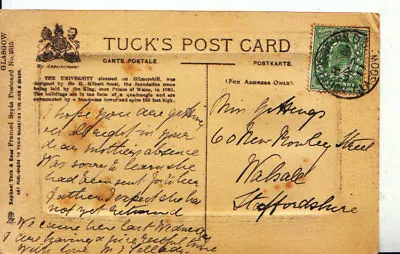 TUCK'S POST CARD
CARTE POSTALE.
POSTKARTE.
By Appointment
(For Address Only)
THE UNIVERSITY situated on Gilmorehill, was
designed by Sir G. Gilbert Scott, the foundation stone
being laid by the King, then Prince of Wales, in 1868.
The buildings are in the form of a quadrangle and are
surmounted by a handsome tower and spire 300 feet high.
GLASGOW
Raphael Tuck & Sons Framed Sepia Postcard No. 2615
I hope you are getting
on alright in your
dear mother's absence
Was sorry to learn she
had been sent for
father expect she has
not yet returned
We came here last Wednesday
& are having a nice restful time
With love
Miss
60 New Rowley Street
Walsall
Staffordshire